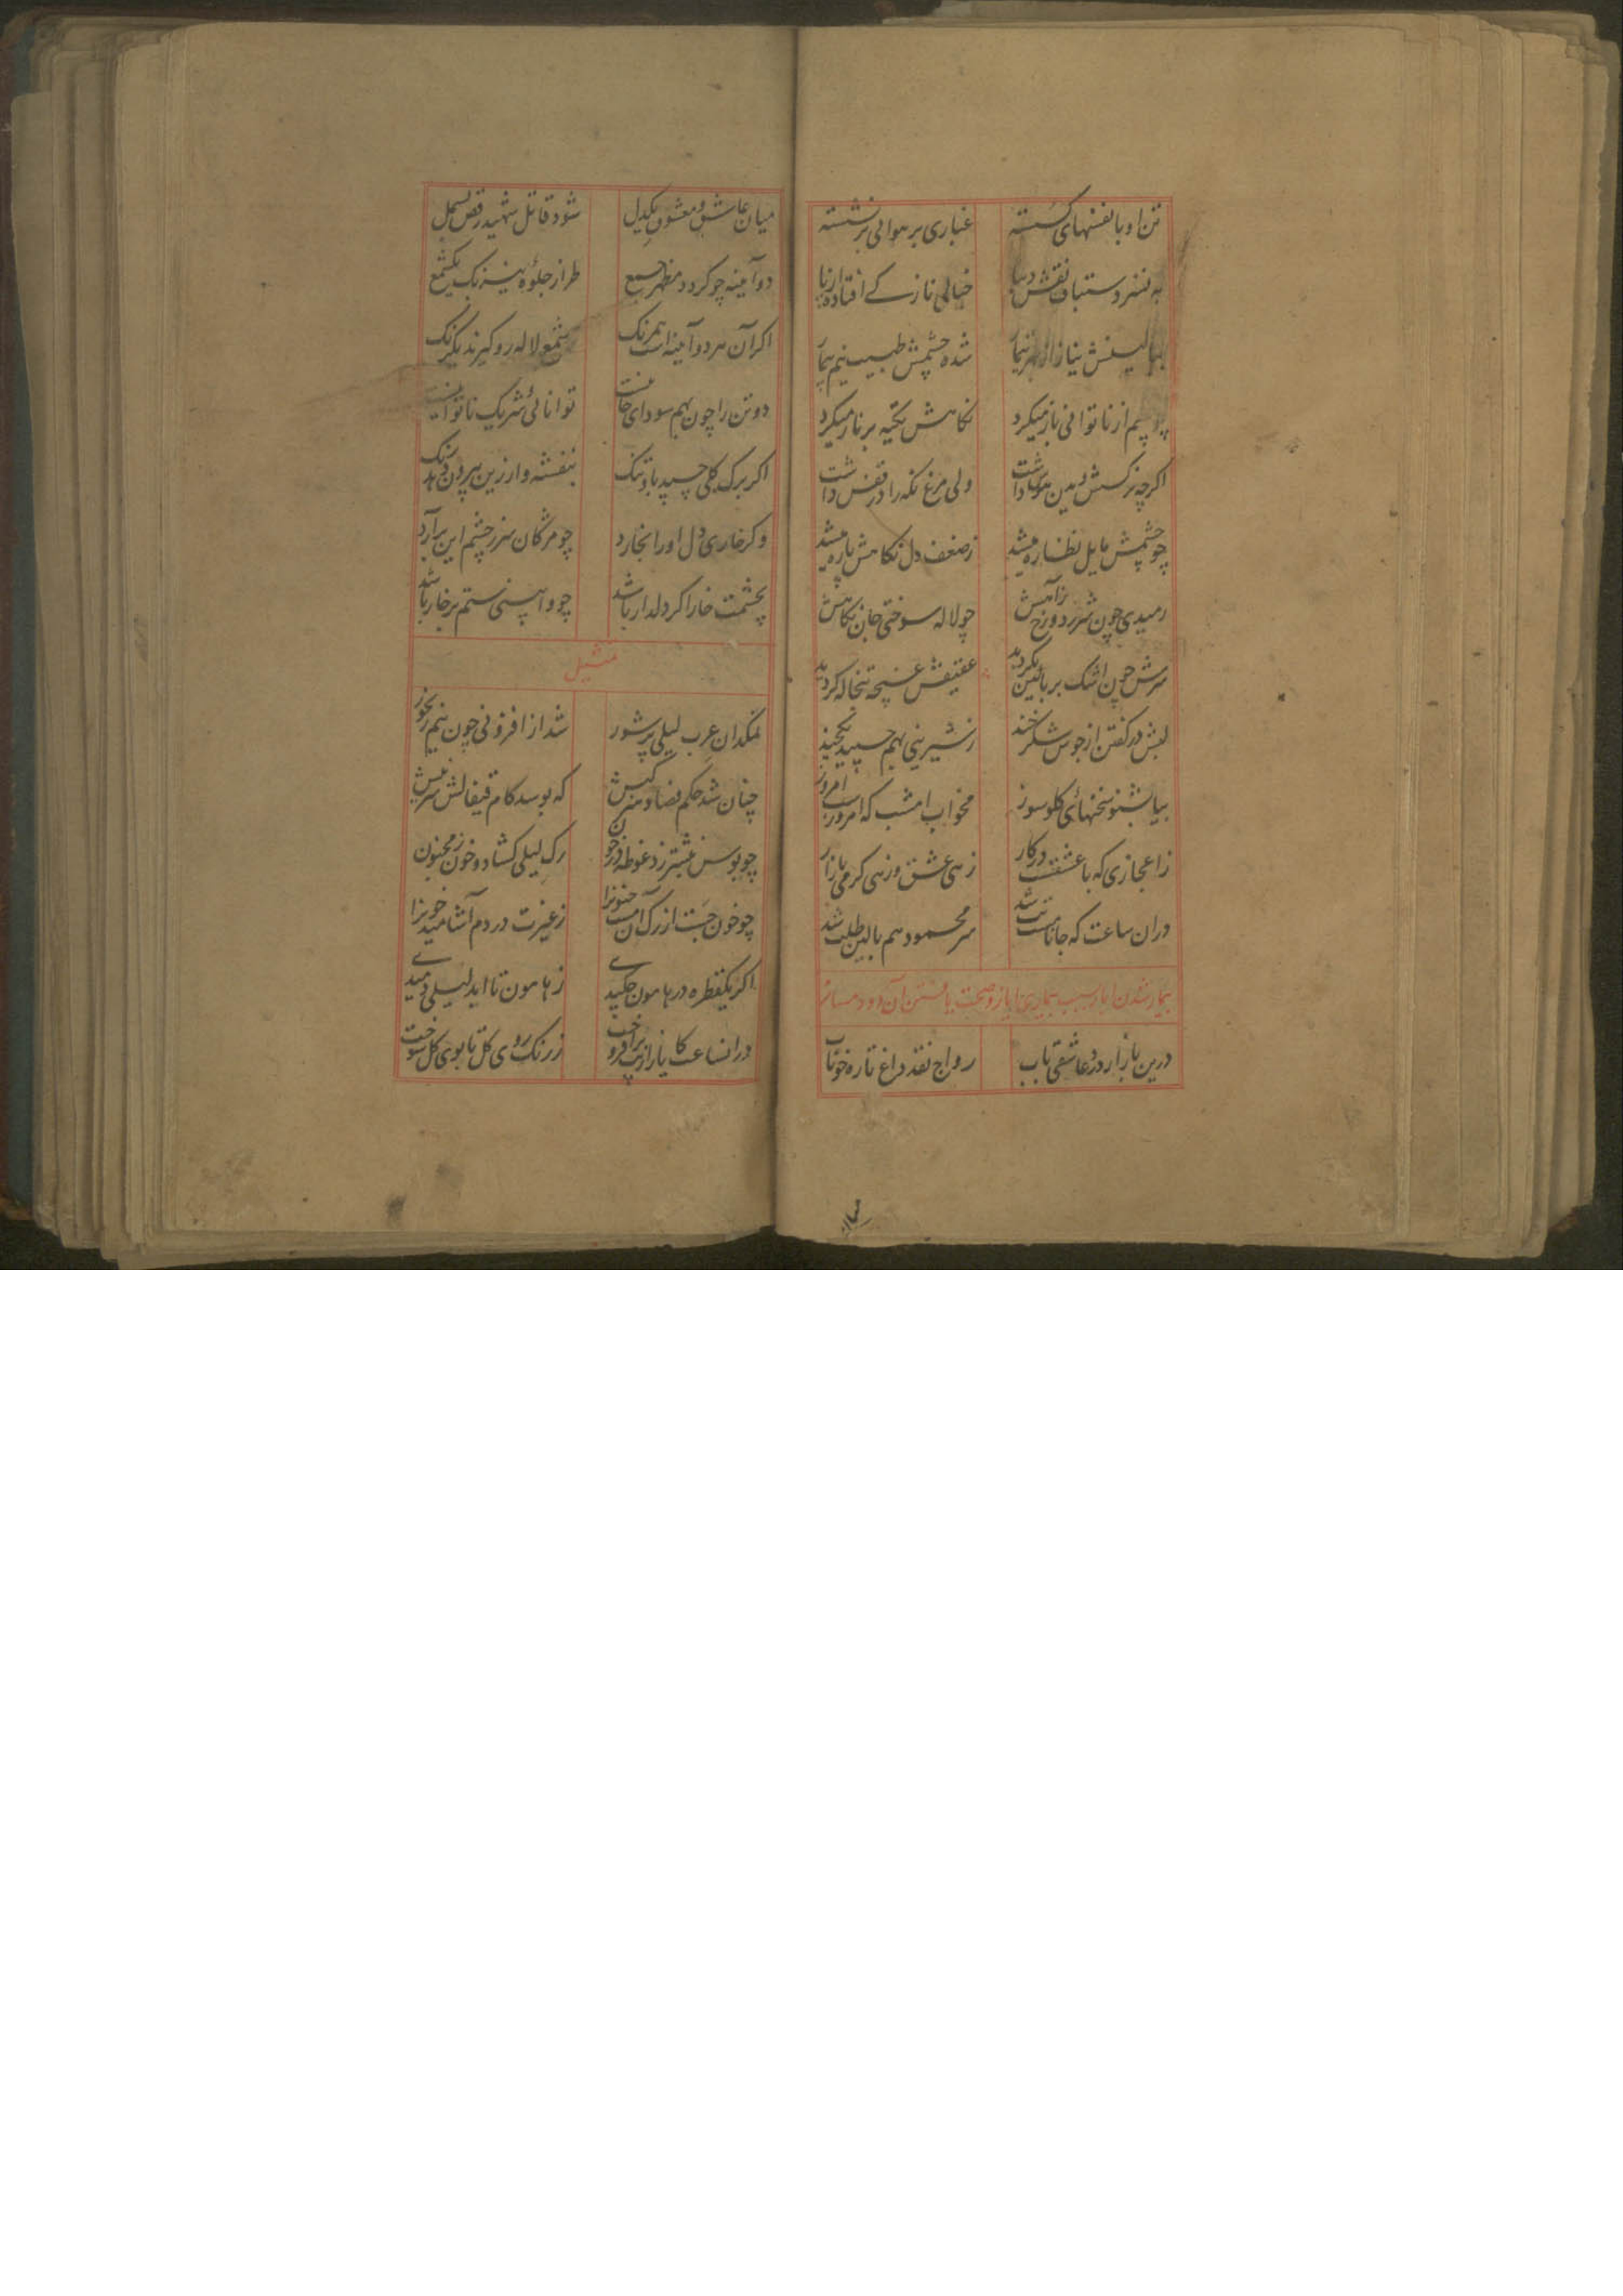 تن او با نفسهای گسسته غباری بر هوائی برنشسته
خیالی نازکے افتاده از پا
شده چشمش طبیب نیم بیمار
چو چشم از ناتوانی ناز میکرد نگاهش تکیه بر ناز میکرد
اگرچه نرگسش ولی مرغ نگه را در قفس داشت
چو چشمش مایل نظاره میشد ز ضعف دل نگاهش پاره میشد
رسیدی چون شرر دوزخ ز آهش چو لاله سوختی جان نگاهش
سرش چون اشک بر بالین بگردید عقیقش غنچه تبخاله گردید
لبش در گفتن از جوش شکرخند ز شیرینی بهم چسپید
بیا بشنو سخنهای گلوسوز مخواب امشب که امروزست امروز
ز اعجازی که با عشقست در کار زهی عشق و زهی گرمی بازار
دران ساعت که جانان مست تب شد سر محمود هم بالین طلب شد
بیمار شدن ایاز و صحت یافتن آن دو دمساز
درین بازار درد عاشقی باب رواج نقد داغ تازه خوناب
میان عاشق و معشوق یکدل شود قاتل شهید رقص بسمل
دو آیینه چو گردد مظهر جمع طراز جلوه نیرنگ یکشمع
اگر آن هر دو آیینه است همرنگ ز شمع لاله رو گیرند یکرنگ
دو تن را چون بهم سودای جانیست توانائی شریک ناتوانیست
اگر برگ گلی چسپید باو تنگ بنفشه وار زین بیرون دمد رنگ
وگر خاری دل او را بخارد چو مژگان سر ز چشم این برآرد
بچشمت خار اگر دلدار باشد چو وابینی ستم بر خار باشد
تمثیل
نمکدان عرب لیلی پرشور شد از افزونی خون نیم رنجور
چنان شد حکم فصاد هنر کیش که بوسد کام قیفالش سر نیش
چو بوس نشتر زد غوطه در خون رگ لیلی گشاد و خون ز مجنون
چو خون جست از رگ آن مست خونرا ز غیرت در دم آشامید خونرا
اگر یکقطره در هامون چکیدے ز هامون تا ابد لیلی دمیدے
درانساعت کایاز از تب برافروخت ز رنگ روی گل تا بوی گل سوخت